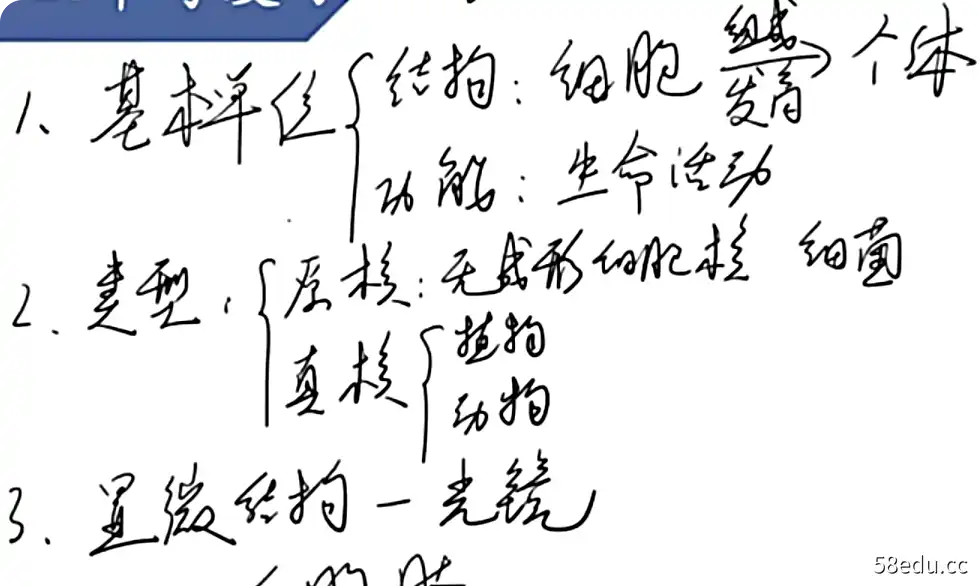 1、基本单位 { 结构：细胞 组成 发育 → 个体
功能：生命活动
2、类型： { 原核：无成形细胞核 细菌
真核 { 植物
动物
3、显微结构 — 光镜
58edu.cc